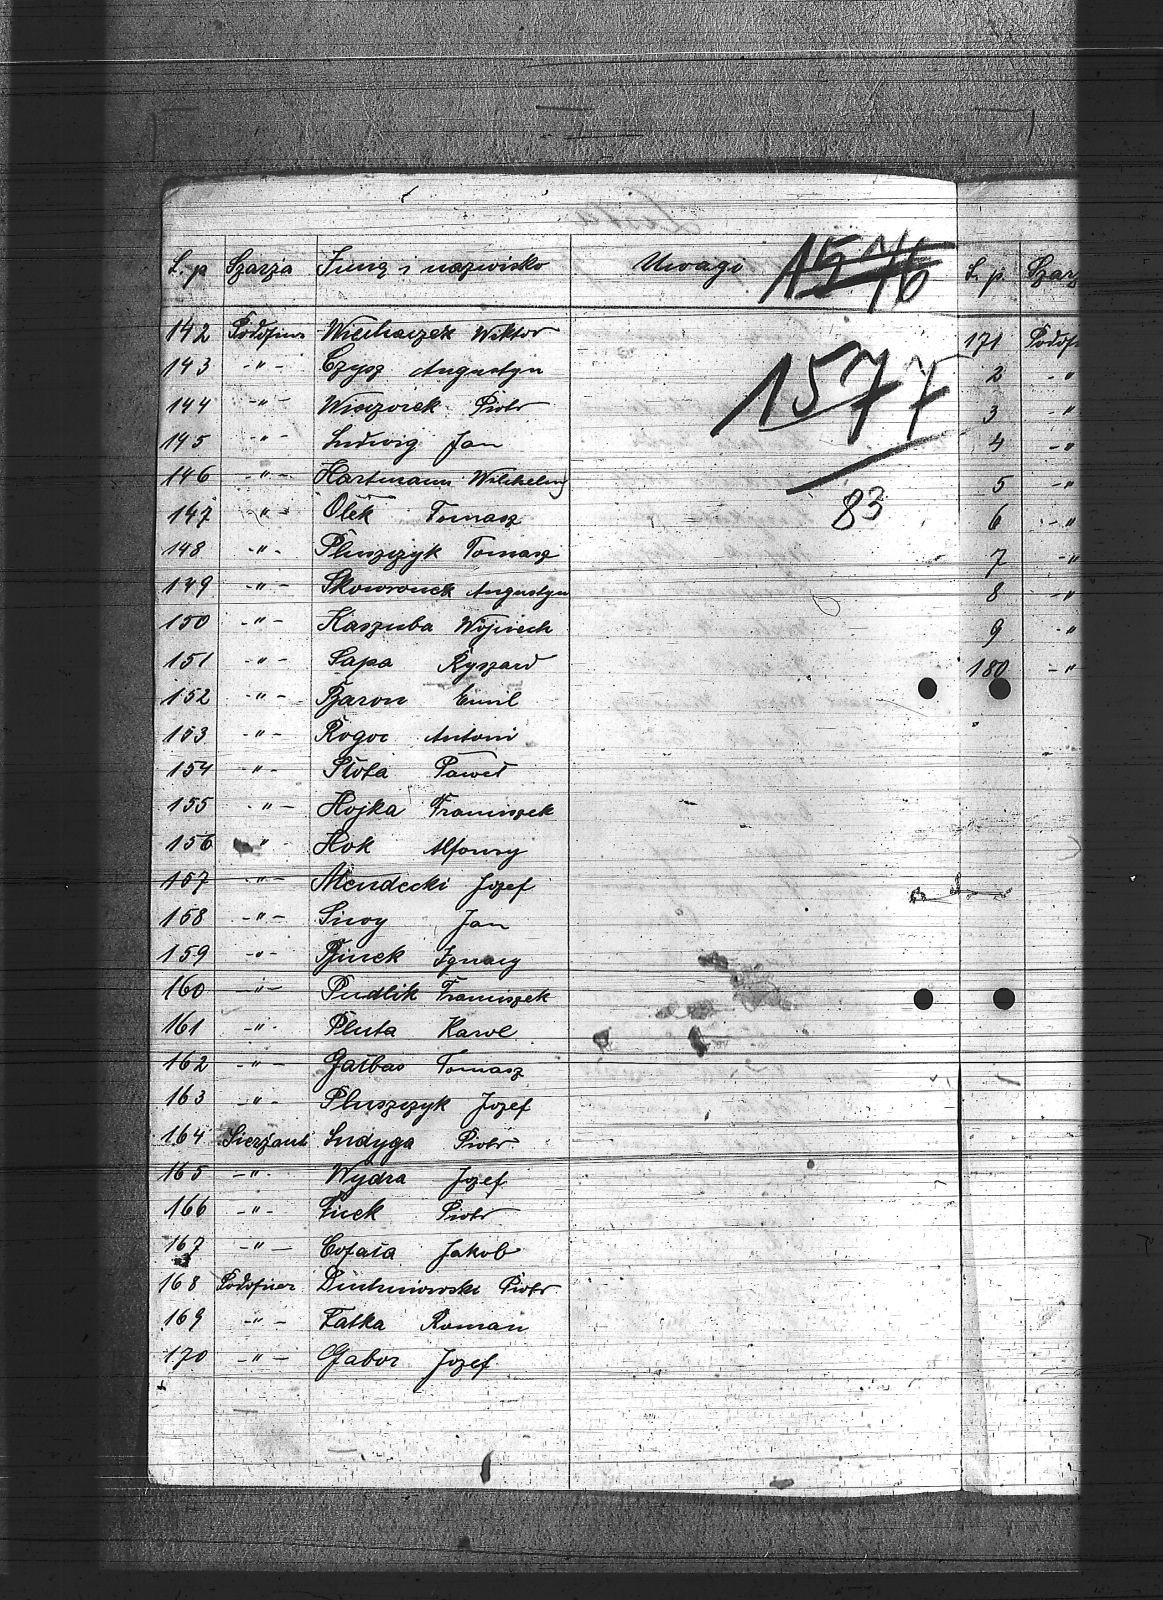 L. p Szarża Imię i nazwisko Uwagi 1576 L. p. Szarż
1577
83
142 Podofıcer Wiechaczek Wiktor
143 -"- Czysz Augustyn
144 -"- Wieczorek Piotr
145 -"- Ludwig Jan
146 -"- Hartmann Wilchelm
147 -"- Olek Tomasz
148 -"- Pluszczyk Tomasz
149 -"- Skowronek Augustyn
150 -"- Kaszuba Wojciech
151 -"- Sapa Ryszard
152 -"- Baron Emil
153 -"- Rogoc Antoni
154 -"- Słota Paweł
155 -"- Hojka Franciszek
156 -"- Hok Alfonsy
157 -"- Mendecki Jozef
158 -"- Siwy Jan
159 -"- Ignacy
160 -"- Pudlik Franciszek
161 -"- Pluta Karol
162 -"- Garbas Tomasz
163 -"- Pluszczyk Jozef
164 Sierżant Indyga Piotr
165 -"- Wydra Jozef
166 -"- Piotr
167 -"- Cofała Jakob
168 Podoficer Piotr
169 -"- Fatka Roman
170 -"- Gabor Jozef
171 Podofi
2 -"
3 -"
4 -"
5 -"
6 -"
7 -"
8 -"
9 -"
180 -"